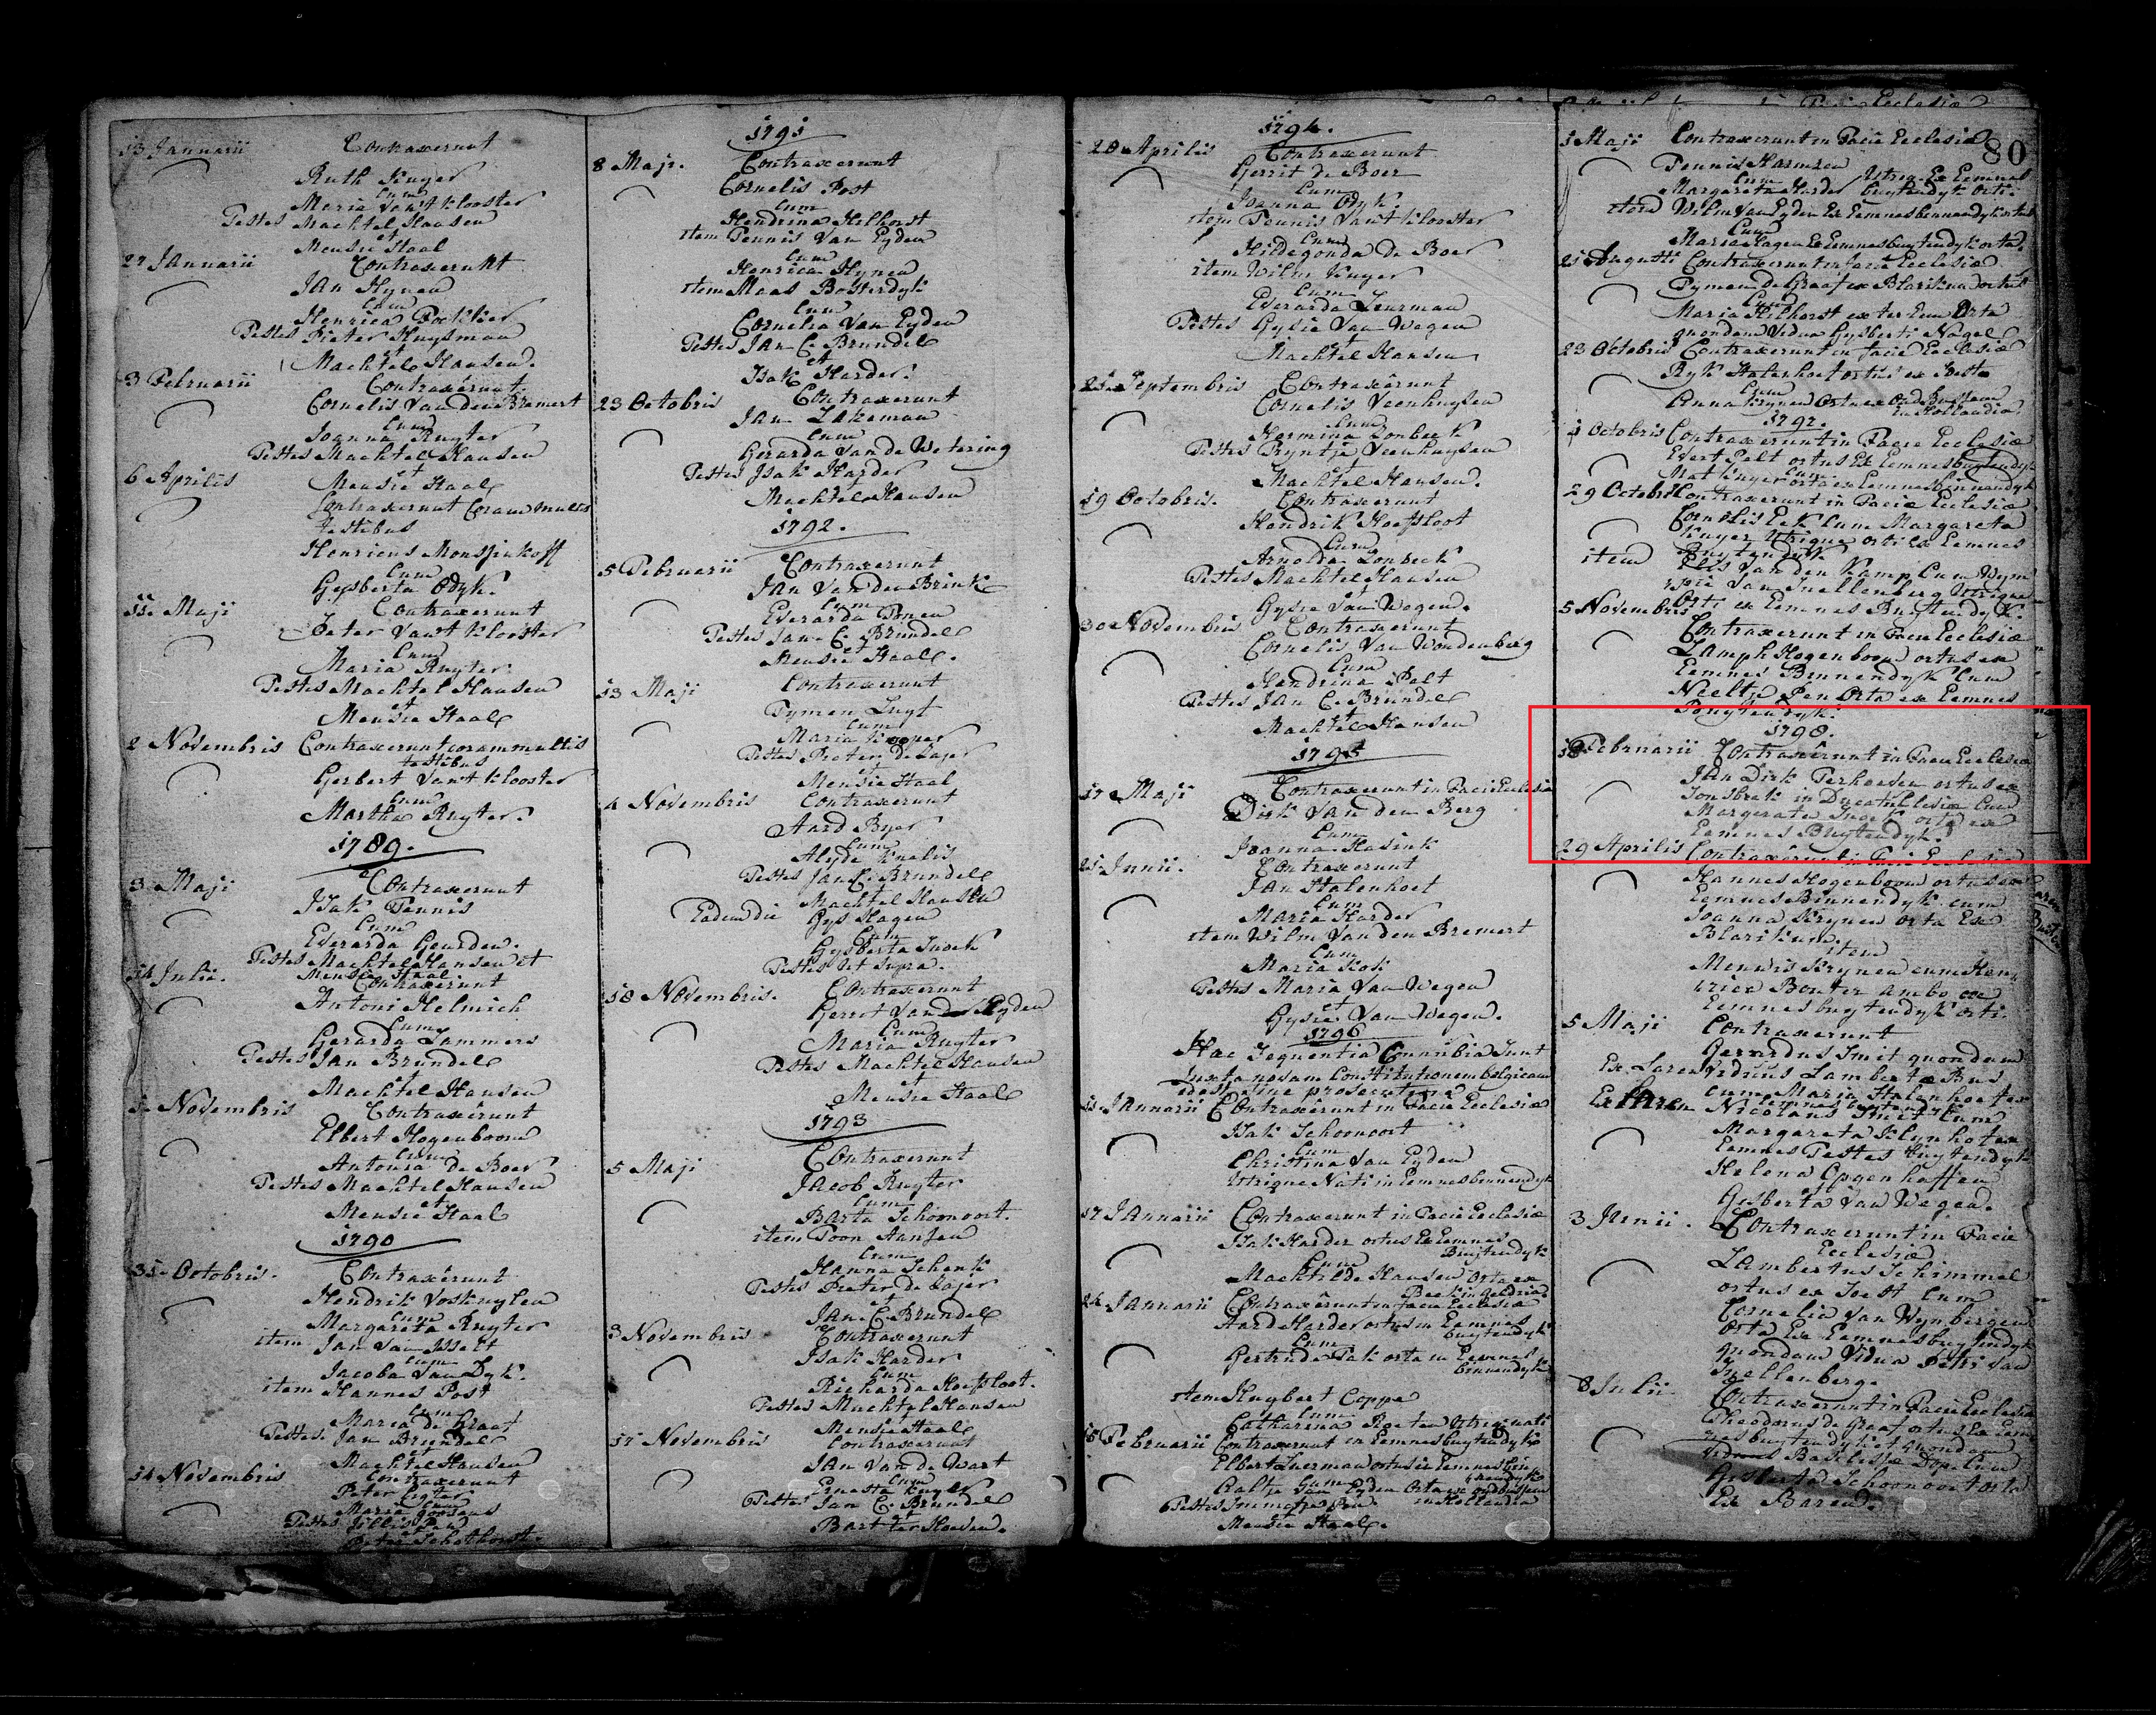 13 Januarii Contraxerunt
Ruth Kuyer
Cum
Maria Van't Klooster
Testes Machtel Hansen
et
Mensie Staal
27 Januarii Contraxerunt
Jan Hynen
Cum
Henrica Fockker
Testes Pieter Huysman
et
Machtel Hansen.
3 Februarii Contraxerunt
Cornelis Van den Bremert
Cum
Joanna Ruyter
Testes Machtel Hansen
et
Mensie Staal
6 Aprilis Contraxerunt Coram multis
Testibus
Henricus Monsjinkoff
Cum
Gysberta Odyk.
11. Maji Contraxerunt
Peter Van't Klooster
Cum
Maria Ruyter.
Testes Machtel Hansen
et
Mensie Staal
2 Novembris Contraxerunt coram multis
testibus
Gerbert Van't Klooster
Cum
Martha Ruyter.
1789.
3 Maji Contraxerunt
Isak Tennis
Cum
Everarda Geurden.
Testes Machtel Hansen et
Mensie Staal
14 Julii. Contraxerunt
Antoni Helmich
Cum
Gerarda Lammers
Testes Jan Brundel
et
Machtel Hansen
1. Novembris Contraxerunt
Elbert Hogenboom
Cum
Antonia de Boer
Testes Machtel Hansen
et
Mensie Staal
1790
31. Octobris. Contraxerunt
Hendrik Voskuylen
Cum
Margareta Ruyter
item Jan Van Isselt
Cum
Jacoba Van Dyk.
item Hannes Post
Cum
Maria de Graaf
Testes Jan Brundel
et
Machtel Hansen
14 Novembris Contraxerunt
Peter
Cum
Maria Goosens
Testes
et
Peter Schothorst.
1791
8 Maji. Contraxerunt
Cornelis Post
Cum
Hendrina Hilhorst
item Tennis Van Eyden
Cum
Henrica Hynen
item Maas Bosterdyk
Cum
Cornelia Van Eyden
Testes Jan C. Brundel
et
Isak Harder.
23 Octobris Contraxerunt
Jan Lakeman
Cum
Gerarda Van de Wetering
Testes Isak Harder
et
Machtel Hansen
1792.
5 Februarii Contraxerunt
Jan Van den Brink
Cum
Everarda Tonen
Testes Jan C. Brundel
et
Mensie Staal.
13 Maji Contraxerunt
Tymen Lugt
Cum
Maria Kuyper
Testes Pieter de Lajer
et
Mensie Staal
4 Novembris Contraxerunt
Aard Byer
Cum
Alyda Knelis
Testes Jan C. Brundel
et
Machtel Hansen
Eadem die Gys Hagen
Cum
Gysberta Snoek
Testes Ut Supra.
18 Novembris. Contraxerunt
Gerrot Van der Heyden
Cum
Maria Ruyter
Testes Machtel Hansen
et
Mensie Staal
1793
5 Maji Contraxerunt
Jacob Ruyter
Cum
Barta Schoonoort.
item Toon Hansen
Cum
Hanna Schenk
Testes Pieter de Lajer
et
Jan C. Brundel
3 Novembris Contraxerunt
Isak Harder
Cum
Richarda Hoefsloot.
Testes Machtel Hansen
et
Mensie Staal
17 Novembris Contraxerunt
Jan Van de Wart
Cum
Ernesta Kuyer
Testes Jan C. Brundel
et
Bart ter Hoeven.
1794.
20 Aprilis Contraxerunt
Gerrit de Boer
Cum
Joanna Odyk.
item Tennis Van't Klooster
Cum
Hildegonda De Boer
item Wilm Kuyer
Cum
Everarda Zeurman
Testes Gysie Van Wegen
et
Machtel Hansen
21. Septembris Contraxerunt
Cornelis Veenhuysen
Cum
Hermina Lonbeek
Testes Pryntje Veenhuysen
et
Machtel Hansen.
19 Octobris. Contraxerunt
Hendrik Hoefsloot
Cum
Arnolda Lonbeek
Testes Machtel Hansen
et
Gysie Van Wegen.
30 Novembris Contraxerunt
Cornelis Van Woudenberg
Cum
Hendrina Palt
Testes Jan C. Brundel
et
Machtel Hansen
1795
17 Maji Contraxerunt in Facie Ecclesiæ
Dirk Van den Berg
Cum
Joanna Hasink
21 Junii. Contraxerunt
Jan Stalenhoef
Cum
Maria Harder
item Wilm Van den Bremert
Cum
Maria Kok
Testes Maria Van Wegen
et
Gysie Van Wegen.
1796
Hæc Sequentia Connubia Sunt
Juxta novam Constitutionem belgicam
11 Januarii Contraxerunt in Facie Ecclesiæ
Isak Schoonoort
Cum
Christina Van Eyden
Utrique Nati in Eemnes binnendyk
17 Januarii Contraxerunt in Facie Ecclesiæ
Isak Harder ortus Ex Eemnes
Buytendyk
Cum
Machtilde Hansen orta ex
Beek in Geldria
24 Januarii Contraxerunt in facie Ecclesiæ
Aard Harder ortus in Eemnes
buytendyk
Cum
Gertrude Pak orta in Eemnes
binnendyk
item Huybert Coppe
Cum
Catharina Roeten Utrique nati
15 Februarii Contraxerunt in Eemnes buytendyk
Elbert Zuerman ortus in Eemnes bin
nendyk
Cum
Aaltje Van Eyden orta ex oud bussem
in Hollandia
Testes Immetje
Mensie Staal.
80
1 Maji Contraxerunt in Facie Ecclesiæ
Tennis Harmzen
Cum
Margareta Harder Utrique Ex Eemnes
buytendyk Orti.
item Wilm Van Eyden Ex Eemnes binnendyk ortus
Cum
Maria Hagen Ex Eemnes buytendyk orta.
21 Augusti Contraxerunt in facie Ecclesiæ
Tymen De Graaf ex Blarikum ortus
Cum
Maria Hilhorst ex ter Eem Orta
quondam Vidua Gysberti Nagel
23 Octobris Contraxerunt in facie Ecclesiæ
Ryk Stalenhoef ortus ex Soest
Cum
Anna Krynen Orta ex Oud Bussem
in Hollandia
1797.
1 Octobris Contraxerunt in Facie Ecclesiæ
Evert Palt ortus Ex Eemnes buytendyk
Cum
Mat Kuyer orta ex Eemnes binnendyk
29 Octobris Contraxerunt in Facie Ecclesiæ
Cornelis Eek Cum Margareta
Kuyer Utrique orti ex Eemnes
Buytendyk
item Elis Van den Kamp Cum Wym
pje Van Snellenberg Utrique
Orti ex Eemnes Buytendyk.
5 Novembris Contraxerunt in Facie Ecclesiæ
Lamph Hogenboom ortus ex
Eemnes Binnendyk Cum
Neeltje Pen Orta ex Eemnes
Buytendyk.
1798.
18 Februarii Contraxerunt in Facie Ecclesiæ
Jan Dirk Terhoeven ortus ex
Sonsbek in Ducatu Clesiæ Cum
Margareta Snoek orta ex
Eemnes Buytendyk.
29 Aprilis Contraxerunt in Facie Ecclesiæ
Hannes Hogenboom ortus ex
Eemnes Binnendyk cum
Joanna Krynen orta Ex
Blarikum
item
Menwis Krynen cum Hen
rica Bouter ambo ex
Eemnes buytendyk orti.
5 Maji Contraxerunt
Gerardus Smit quondam
Ex Laren Viduus Lambertæ Bus
cum Maria Stalenhoef ex
Eemnes buytendyk
Ex Laren Nicolaus Smit Cum
Margareta Klynhot ex
Eemnes Testes buytendyk
Helena Opgenhaffen
et
Gysberta Van Wegen.
3 Junii. Contraxerunt in Facie
Ecclesiæ
Lambertus Schimmel
ortus ex Soest Cum
Cornelia Van Wynbergen
Orta Ex Eemnes buytendyk
quondam Vidua Petri Van
Snellenberg.
8 Julii Contraxerunt in Facie Ecclesiæ
Theodorus de Graaf ortus Ex Eem
nes buytendyk et quondam
Viduus Basilissæ Dop Cum
Gysberta Schoonoort orta
Ex Baren.